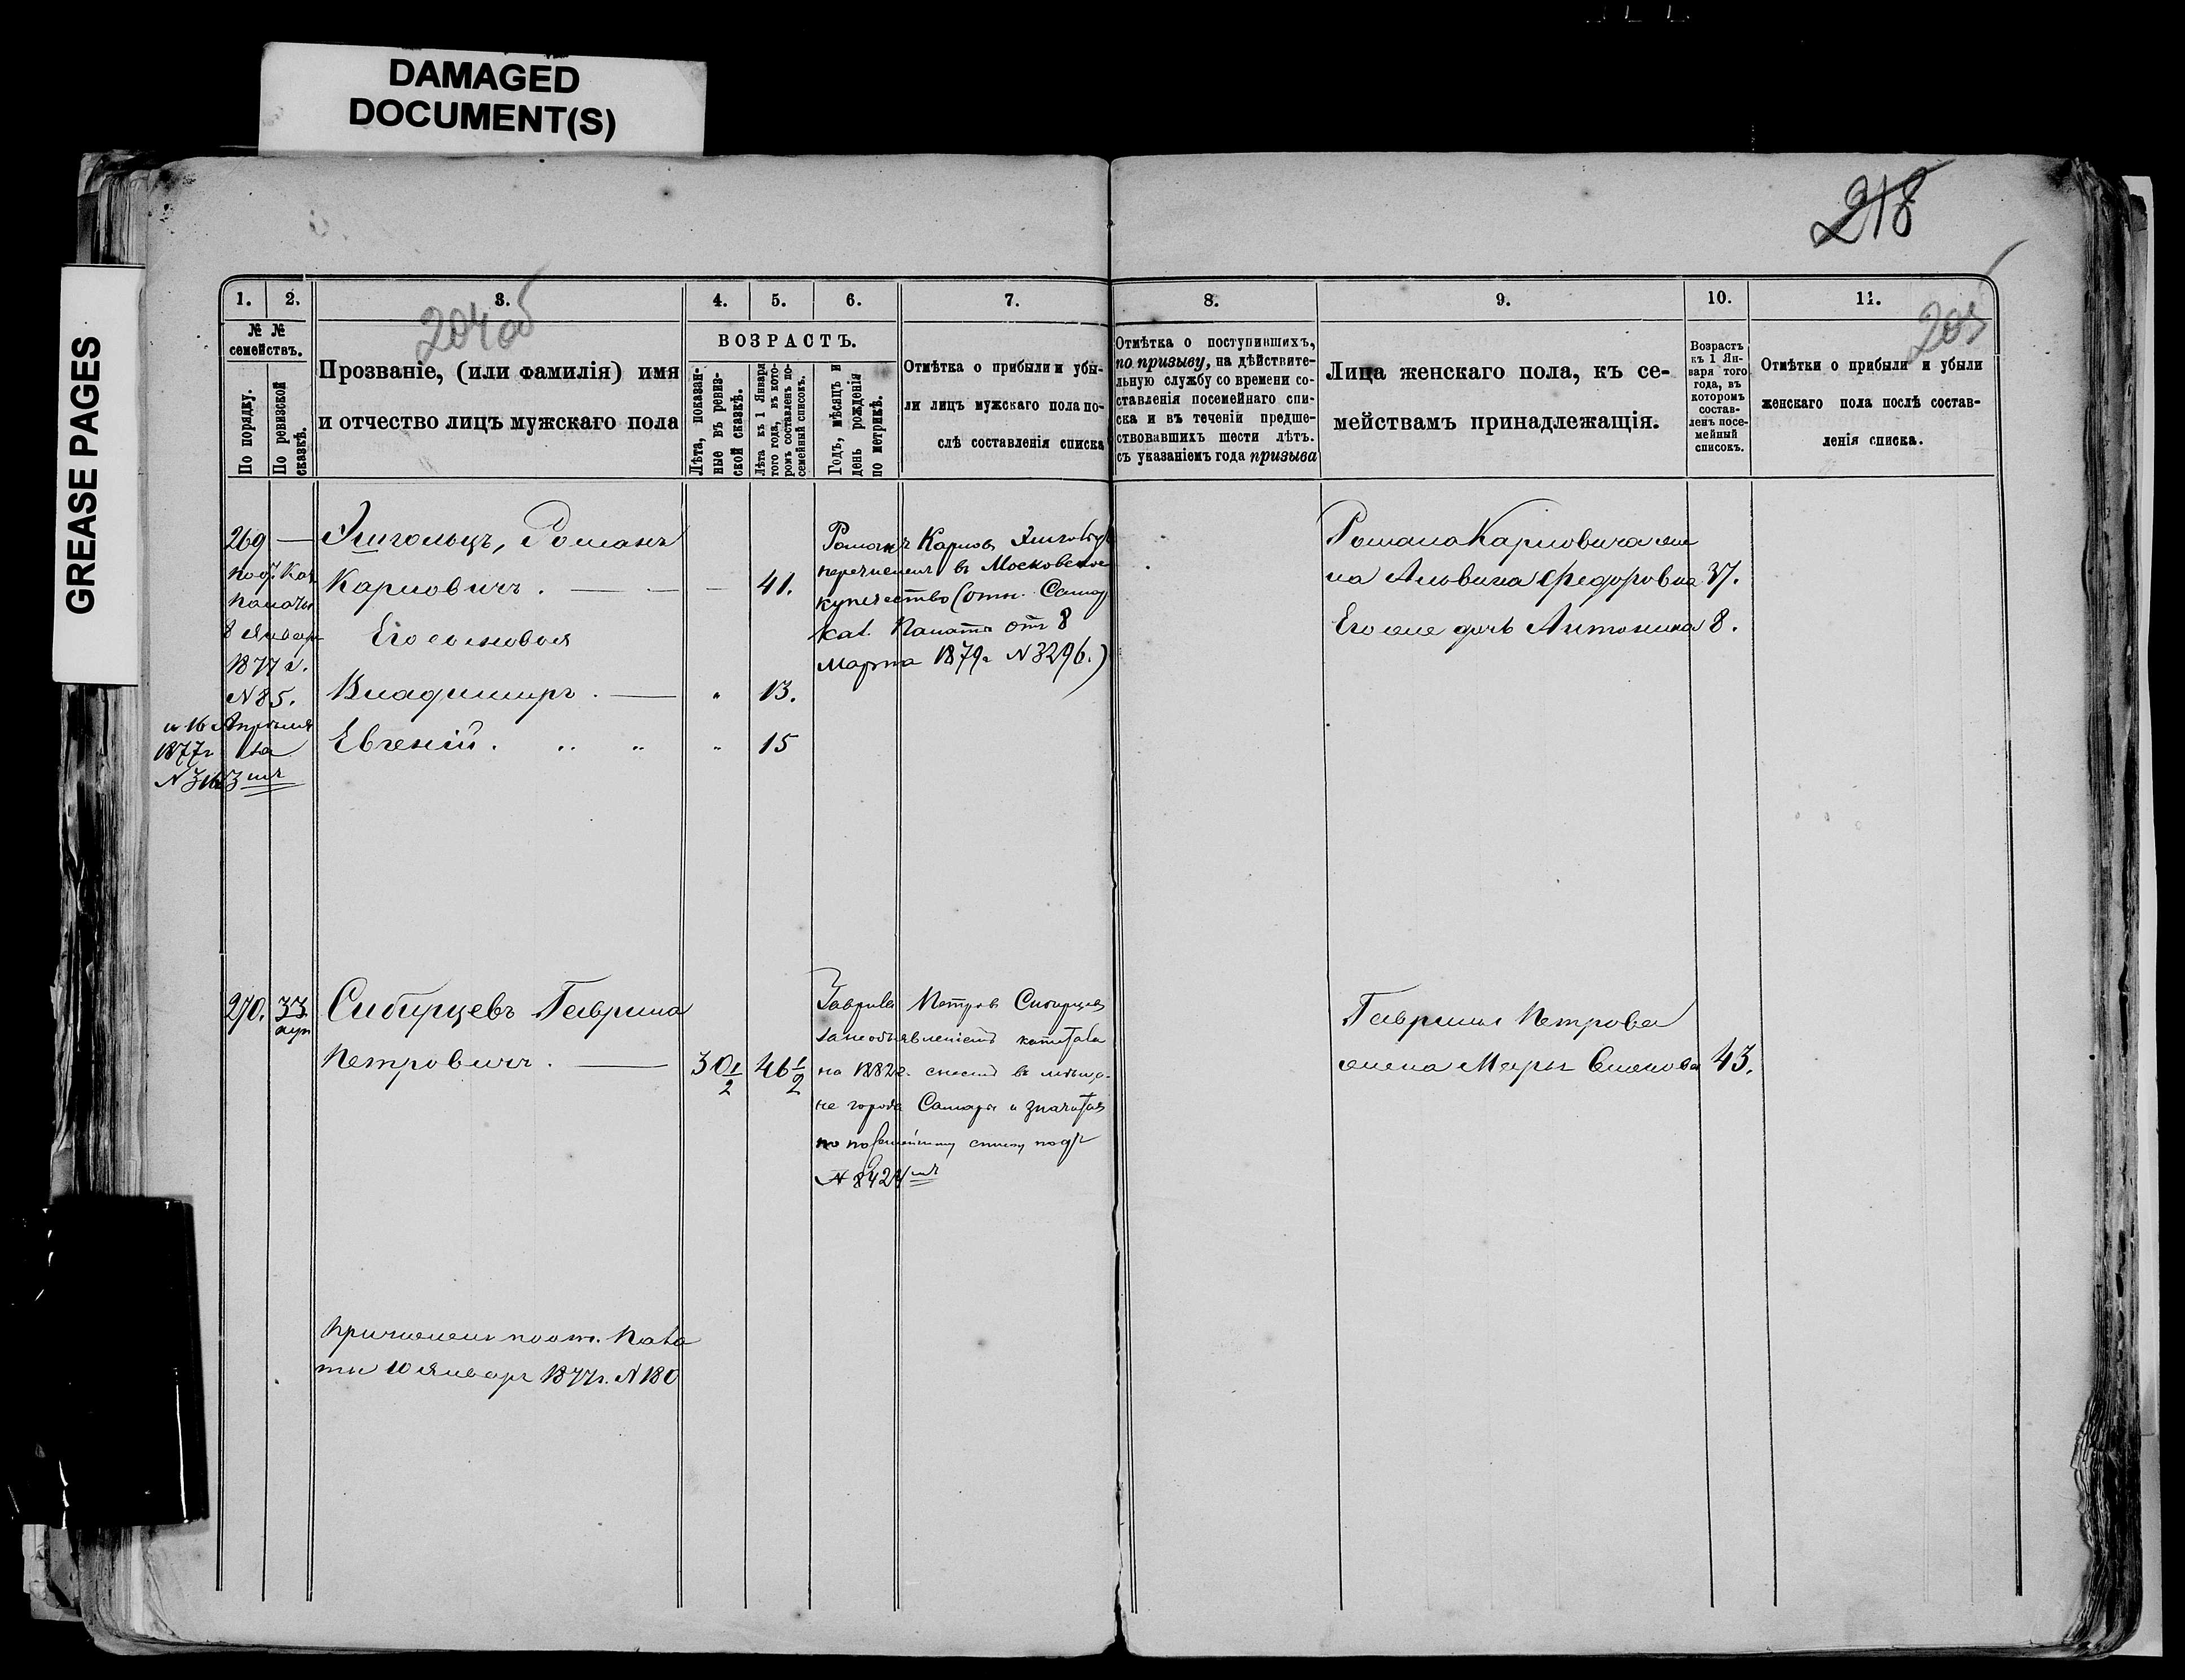 DAMAGED
DOCUMENT(S)
GREASE PAGES
218
204об
205
1.
2.
3.
4.
5.
6.
7.
8.
9.
10.
11.
№ №
семействъ.
По порядку.
По ревизской
сказкѣ.
Прозваніе, (или фамилія) имя
и отчество лицъ мужскаго пола
ВОЗРАСТЪ.
Лѣта, показан-
ные въ ревиз-
ской сказкѣ.
Лѣта къ 1 Января
того года, въ кото-
ромъ составленъ по-
семейный списокъ.
Годъ, мѣсяцъ и
день рожденія
по метрикѣ.
Отмѣтка о прибыли и убы-
ли лицъ мужскаго пола по-
слѣ составленія списка
Отмѣтка о поступившихъ,
по призыву, на дѣйствите-
льную службу со времени со-
ставленія посемейнаго спи-
ска и въ теченіи предше-
ствовавшихъ шести лѣтъ.
съ указаніемъ года призыва
Лица женскаго пола, къ се-
мействамъ принадлежащія.
Возрастъ
къ 1 Ян-
варя того
года, въ
котором
состав-
ленъ посе-
мейный
списокъ.
Отмѣтки о прибыли и убыли
женскаго пола послѣ состав-
ленія списка.
269 —
Каз.
Палаты
8 Январ
1877 г.
N 85.
и 16 Апрѣля
1877 г за
N 3163
Романъ
Карповичъ. — — — 41.
Его сыновья
Владиміръ. — „ 13.
Евгеній. „ „ „ 15
Романъ Карпов
перечислен в Московское
купечество (отн. Самар
Каз. Палаты от 8
Марта 1879 г N 3296.)
Романа Карповича же
на Альвина Федоровна 37.
Его же дочь Антонина 8.
270. 33
Сибирцевъ Гаврила
Петровичъ. — 30 1/2 46 1/2
Гаврила Петров Сибирцев
за необъявленіемъ капитала
на 1882 г. в мѣща-
не города Самары и значится
по посемейному списку подъ
N 8424
Гаврилы Петрова
жена Марья Семенова 43.
Причислен по от. Пала
ты 10 Январ 1877 г. N 180